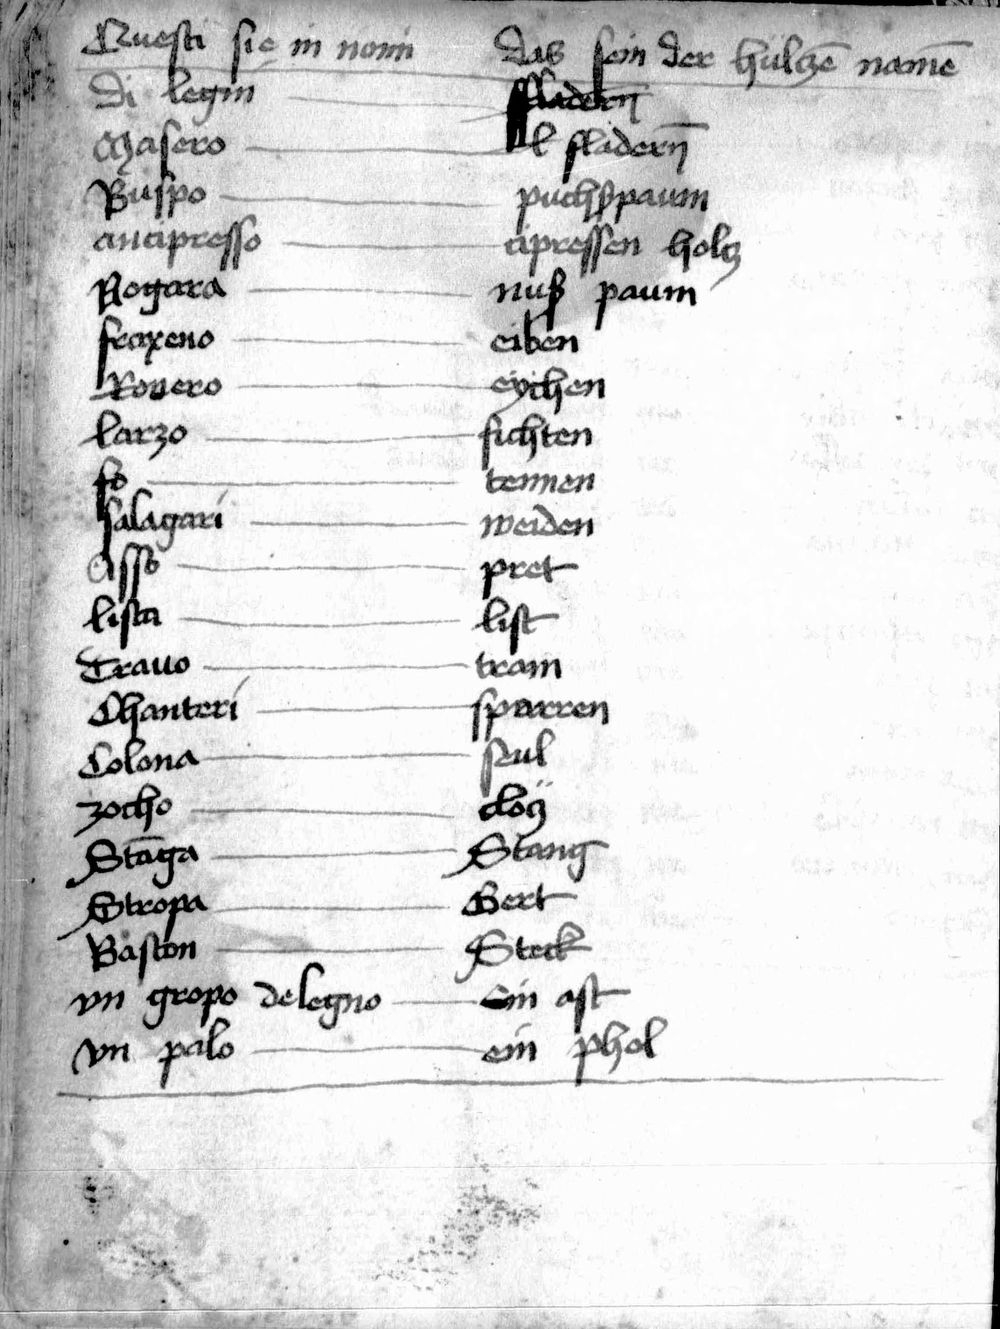 Questi sie in nomi das sein der hülczē namē
Di legni
Masero fladerñ
Buspo puchßpaum
ancipresso cipressen holcz
Nogara nuß paum
fraxeno eiben
Rouero eychen
larzo fichten
fo tennen
salagari weiden
Asse pret
lista list
Trauo tram
Chanteri sparren
Colona seul
zocho clocz
Stāga Stang
Stropa Gert
Baston Steck
vn gropo de legno Ein ast
vn palo ein phol